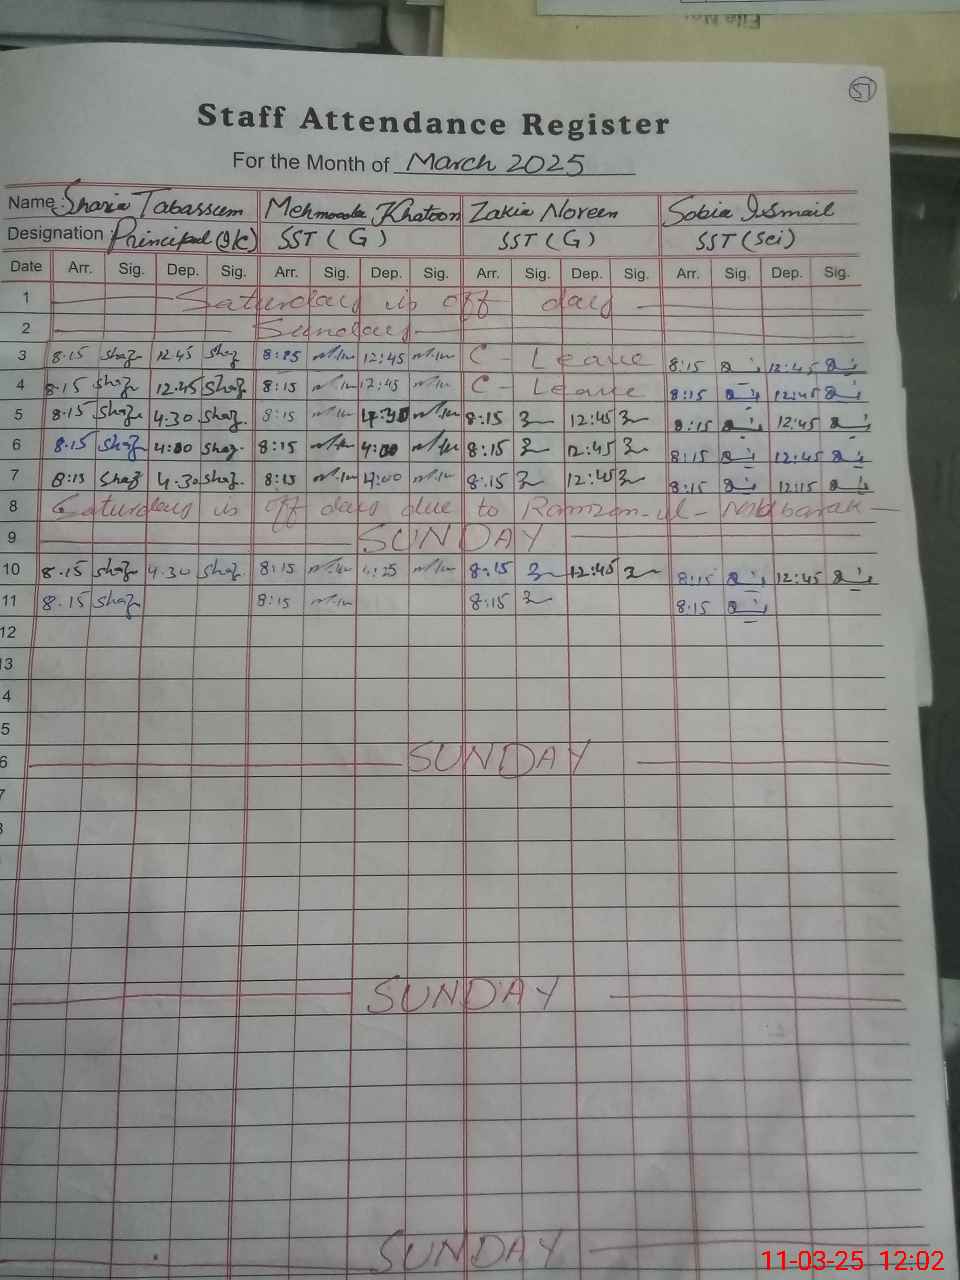 57
Staff Attendance Register
For the Month of March 2025
Name: Shazia Tabassum Mehmooda Khatoon Zakia Noreen Sobia Ismail
Designation Principal (I/C) SST (G) SST (G) SST (Sci)
Date Arr. Sig. Dep. Sig. Arr. Sig. Dep. Sig. Arr. Sig. Dep. Sig. Arr. Sig. Dep. Sig.
1 Saturday is off day
2 Sunday
3 8.15 Shaz 12.45 Shaz 8:15 12:45 C - Leave 8:15 12:45
4 8.15 Shaz 12.45 Shaz 8:15 12:45 C - Leave 8:15 12:45
5 8.15 Shaz 4.30 Shaz. 8:15 4:30 8:15 12:45 8:15 12:45
6 8.15 Shaz 4:00 Shaz. 8:15 4:00 8:15 12:45 8:15 12:45
7 8:15 Shaz 4.30 Shaz. 8:15 4:00 8:15 12:45 8:15 12:15
8 Saturday is off days due to Ramzan-ul-Mubbarak
9 SUNDAY
10 8.15 Shaz 4.30 Shaz. 8:15 8:15 12:45 8:15 12:45
11 8.15 Shaz 8:15 8:15 8:15
12
13
4
5
6 SUNDAY
7
SUNDAY
SUNDAY
11-03-25 12:02